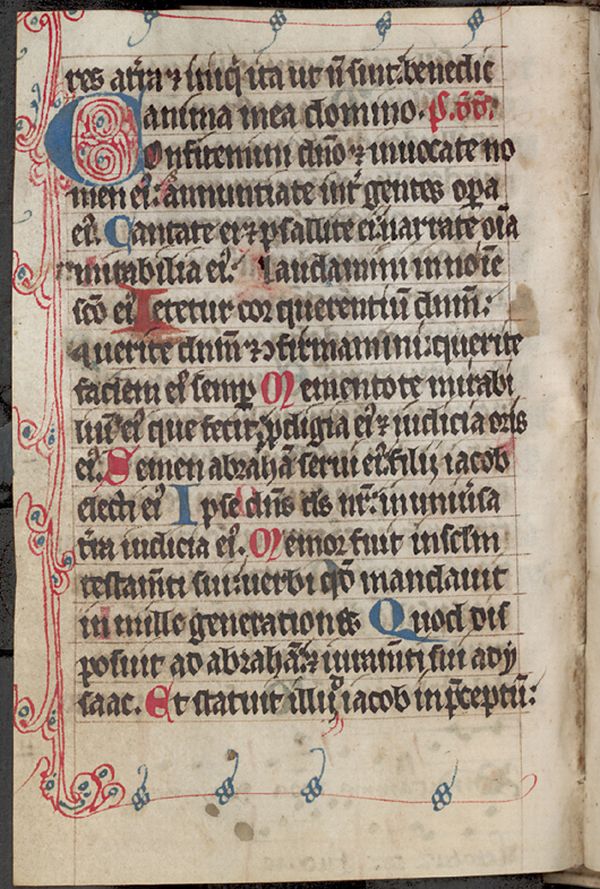 res at̄ra ⁊ iniq̄ ita ut n̄ sint: benedic
anima mea domino. P. 
Confitemini dn̄o ⁊ inuocate no
men eiꝰ: annuntiate int̄ gentes oꝑa
eiꝰ. Cantate ei ⁊ psallite ei: narrate oīa
mirabilia eiꝰ: laudamini in noīe
sc̄o eiꝰ Letetur cor querentiū dn̄m:
querite dn̄m ⁊ ꝯfirmamini: querite
faciem eiꝰ semꝑ Mementote mirabi
liū eiꝰ que fecit: ꝓdigia eiꝰ ⁊ iudicia oris
eiꝰ. Semen abrahā serui eiꝰ: filij iacob
electi eiꝰ Ipse dn̄s ds nr̄: in uniūsa
t̄ra iudicia eiꝰ. Memor fuit in sc̄lm
testam̄ti sui: uerbi qd̄ mandauit
in mille generationes Quod dis
posuit ad abrahā: ⁊ iuram̄ti sui ad y
saac. Et statuit illuḋ iacob in p̄ceptū: